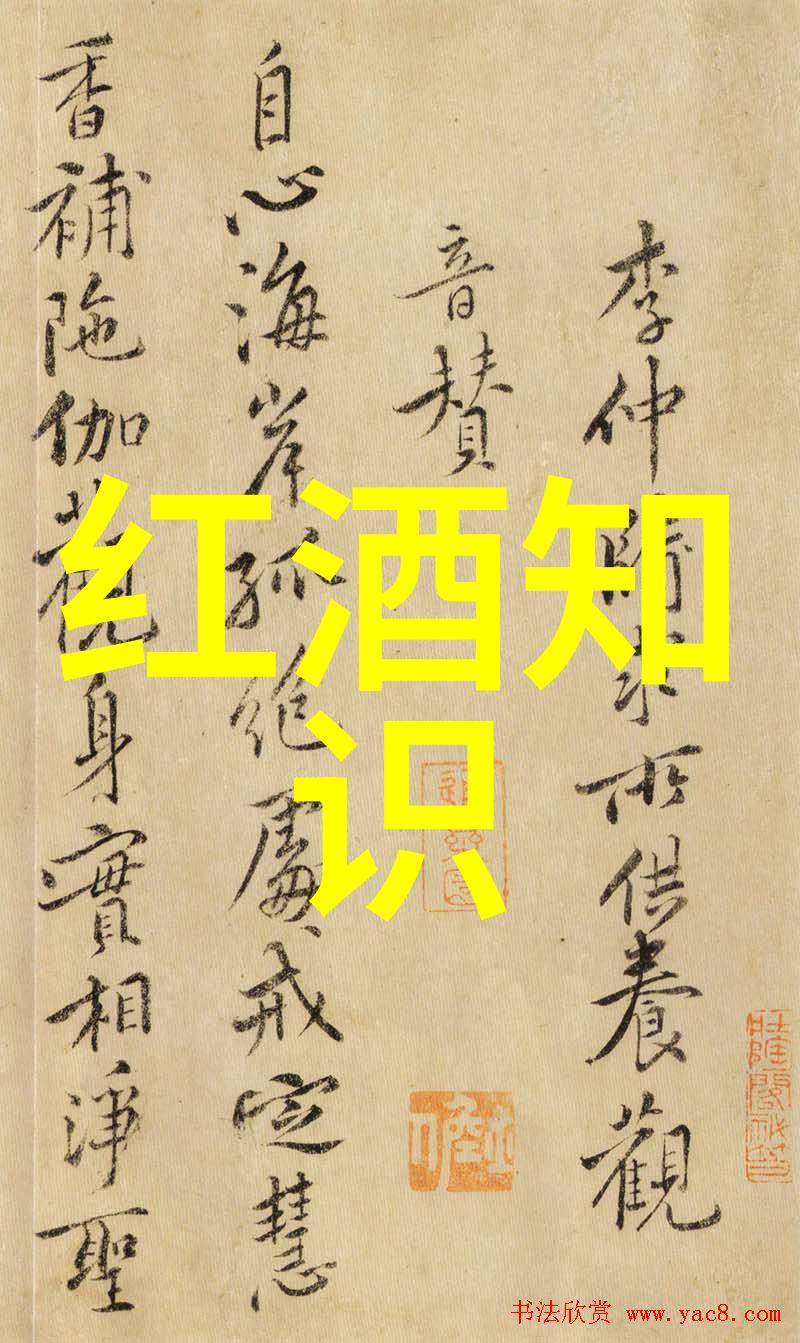 李仲師求所供養觀
音賛
自心海岸孤絶處戒定慧
香補陁伽觀身實相淨聖
红酒知
识
书法欣赏 www.yac8.com